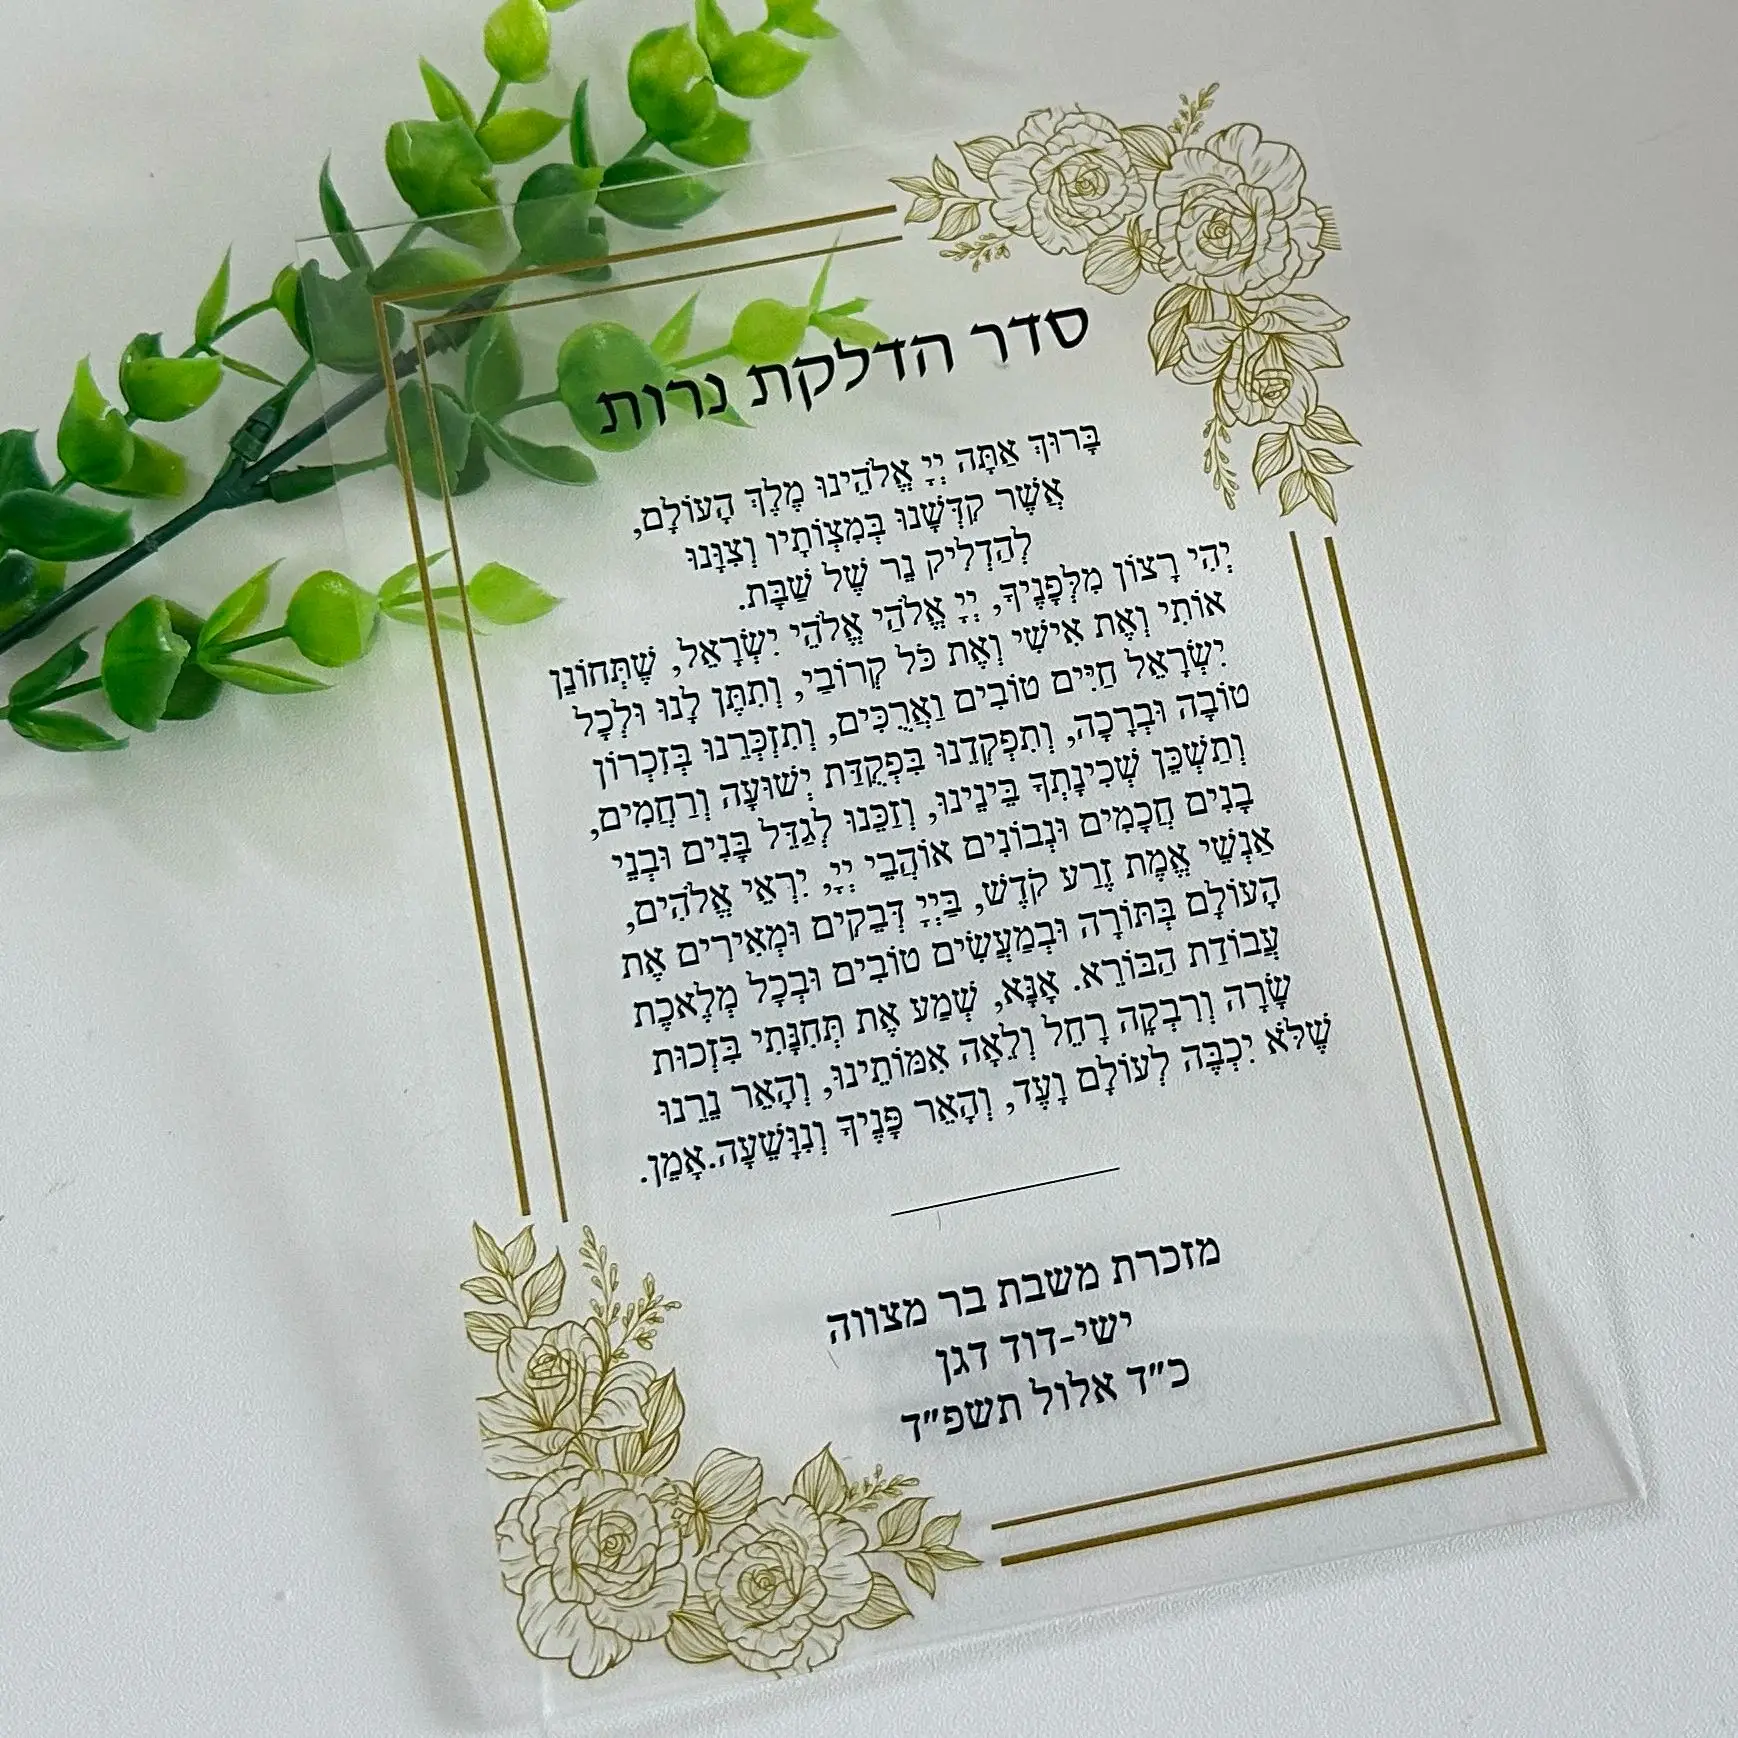 סדר הדלקת נרות
בָּרוּךְ אַתָּה יְיָ אֱלֹהֵינוּ מֶלֶךְ הָעוֹלָם,
אֲשֶׁר קִדְּשָׁנוּ בְּמִצְוֹתָיו וְצִוָּנוּ
לְהַדְלִיק נֵר שֶׁל שַׁבָּת.
יְהִי רָצוֹן מִלְּפָנֶיךָ, יְיָ אֱלֹהַי אֱלֹהֵי יִשְׂרָאֵל, שֶׁתְּחוֹנֵן
אוֹתִי וְאֶת אִישִׁי וְאֶת כֹּל קְרוֹבַי, וְתִתֵּן לָנוּ וּלְכָל
יִשְׂרָאֵל חַיִּים טוֹבִים וַאֲרֻכִּים, וְתִזְכְּרֵנוּ בְּזִכְרוֹן
טוֹבָה וּבְרָכָה, וְתִפְקְדֵנוּ בִּפְקֻדַּת יְשׁוּעָה וְרַחֲמִים,
וְתַשְׁכֵּן שְׁכִינָתְךָ בֵּינֵינוּ, וְזַכֵּנוּ לְגַדֵּל בָּנִים וּבְנֵי
בָנִים חֲכָמִים וּנְבוֹנִים אוֹהֲבֵי יְיָ, יִרְאֵי אֱלֹהִים,
אַנְשֵׁי אֱמֶת זֶרַע קֹדֶשׁ, בַּיְיָ דְּבֵקִים וּמְאִירִים אֶת
הָעוֹלָם בְּתּוֹרָה וּבְמַעֲשִׂים טוֹבִים וּבְכָל מְלֶאכֶת
עֲבוֹדַת הַבּוֹרֵא. אָנָּא, שְׁמַע אֶת תְּחִנָּתִי בִּזְכוּת
שָׂרָה וְרִבְקָה רָחֵל וְלֵאָה אִמּוֹתֵינוּ, וְהָאֵר נֵרֵנוּ
שֶׁלֹּא יִכְבֶּה לְעוֹלָם וָעֶד, וְהָאֵר פָּנֶיךָ וְנִוָּשֵׁעָה.אָמֵן.
מזכרת משבת בר מצווה
ישי-דוד דגן
כ״ד אלול תשפ״ד